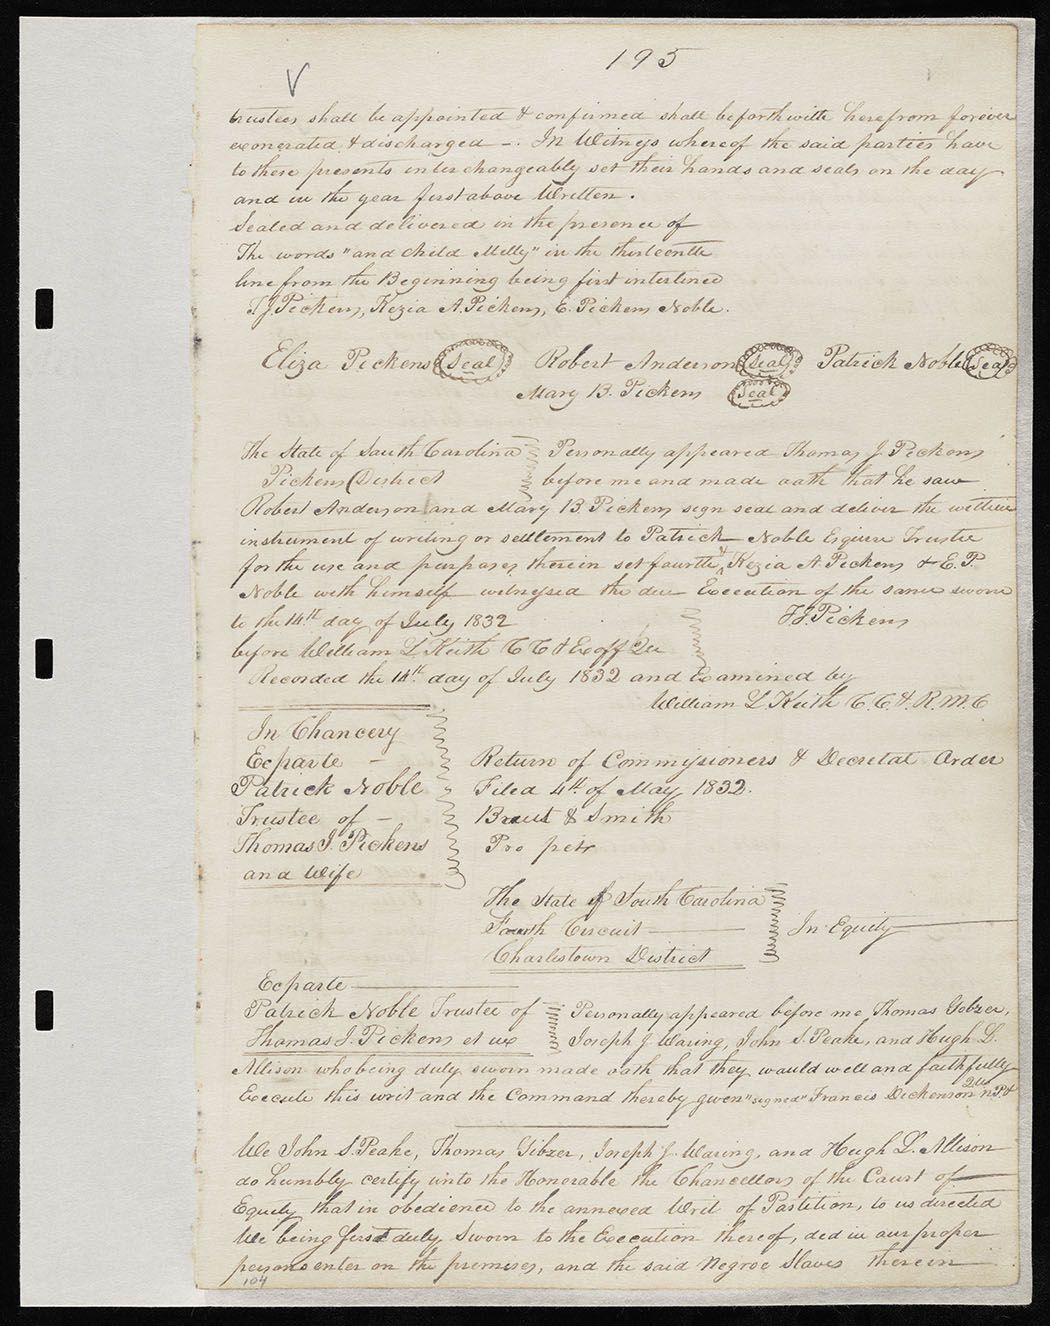 195
V
trustees shall be appointed & confirmed shall be forthwith herefrom forever
exonerated & discharged —. In Witness whereof the said parties have
to these presents interchangeably set their hands and seals on the day
and in the year first above Written.
Sealed and delivered in the presence of
The words "and child Milly" in the thirteenth
line from the Beginning being first interlined
T J Pickens, Kezia A. Pickens, E. Pickens Noble.
Eliza Pickens (Seal) Robert Anderson (Seal) Patrick Noble (Seal)
Mary B. Pickens (Seal)
The State of South Carolina Personally appeared Thomas J. Pickens
Pickens District before me and made oath that he saw
Robert Anderson and Mary B. Pickens sign seal and deliver the within
instrument of writing or settlement to Patrick Noble Esquire Trustee
for the use and purposes therein set fourth & Kezia A. Pickens & E. P.
Noble with himself witnessed the due Execution of the same sworn
to the 14th day of July 1832 T. J. Pickens
before William L Keith C C & Exoff Qu
Recorded the 14th day of July 1832 and Examined by
William L Keith C. C. & R. M. C
In Chancery
Exparte — Return of Commissioners & Decretal Order
Patrick Noble Filed 4th of May 1832.
Trustee of — & Smith
Thomas J. Pickens Pro petr
and Wife
The State of South Carolina
Fourth Circuit In Equity
Charlestown District
Exparte
Patrick Noble Trustee of Personally appeared before me Thomas Gibzer,
Thomas J. Pickens et ux Joseph J. Waring, John S. Peake, and Hugh L.
Allison who being duly sworn made oath that they would well and faithfully
Execute this writ and the Command thereby given "signed" Francis Dickenson N.P. & Qu
We John S. Peake, Thomas Gibzer, Joseph J. Waring, and Hugh L. Allison
do humbly certify unto the Honorable the Chancellors of the Court of
Equity that in obedience to the annexed Writ of Partition, to us directed
We being first duly Sworn to the Execution thereof, did in our proper
persons enter on the premises, and the said Negroe Slaves therein
104